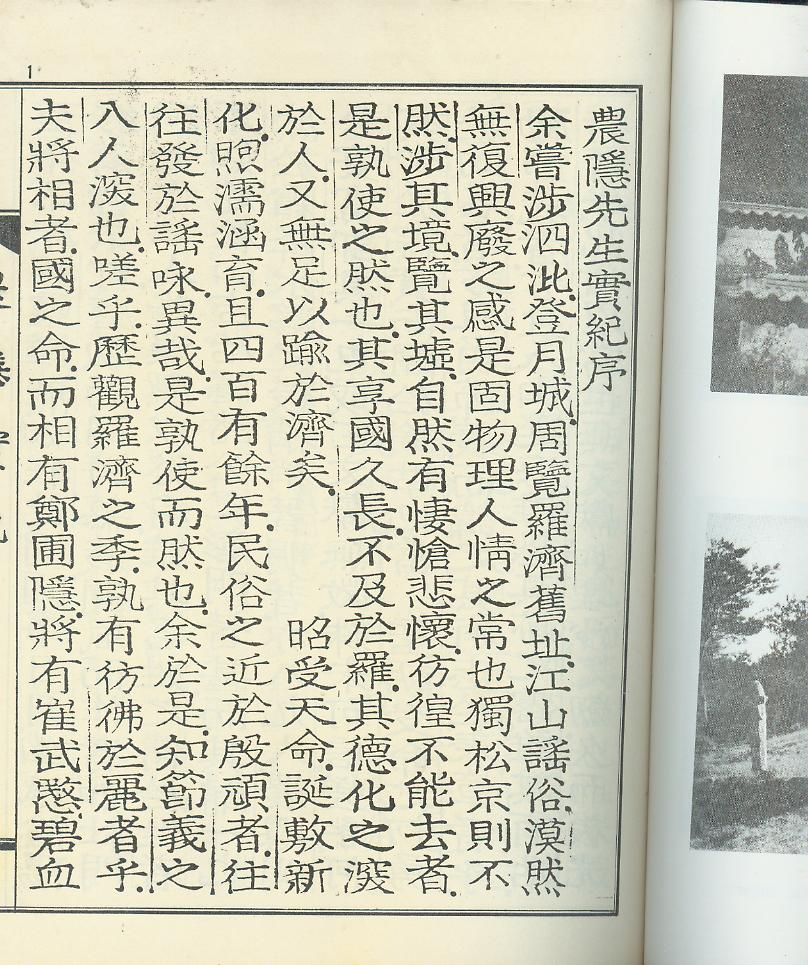 農隱先生實紀序
余嘗涉泗沘.登月城.周覽羅濟舊址.江山謠俗.漠然
無復興廢之感.是固物理人情之常也獨松京則不
然.涉其境.覽其墟.自然有悽愴悲懷.彷徨不能去者.
是孰使之然也.其享國久長.不及於羅.其德化之深
於人.又無足以踰於濟矣.昭受天命.誕敷新
化.煦濡涵育.且四百有餘年.民俗之近於殷頑者.往
往發於謠咏.異哉.是孰使而然也.余於是.知節義之
入人深也.嗟乎.歷觀羅濟之季.孰有彷彿於麗者乎.
夫將相者.國之命.而相有鄭圃隱.將有崔武愍.碧血
1